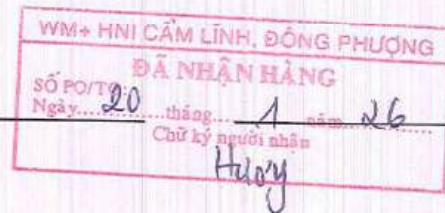 WM+ HNI CẨM LĨNH, ĐÔNG PHƯỢNG
ĐÃ NHẬN HÀNG
SỐ PO/TO
Ngày 20 tháng 1 năm 26
Chữ ký người nhận
Hươy